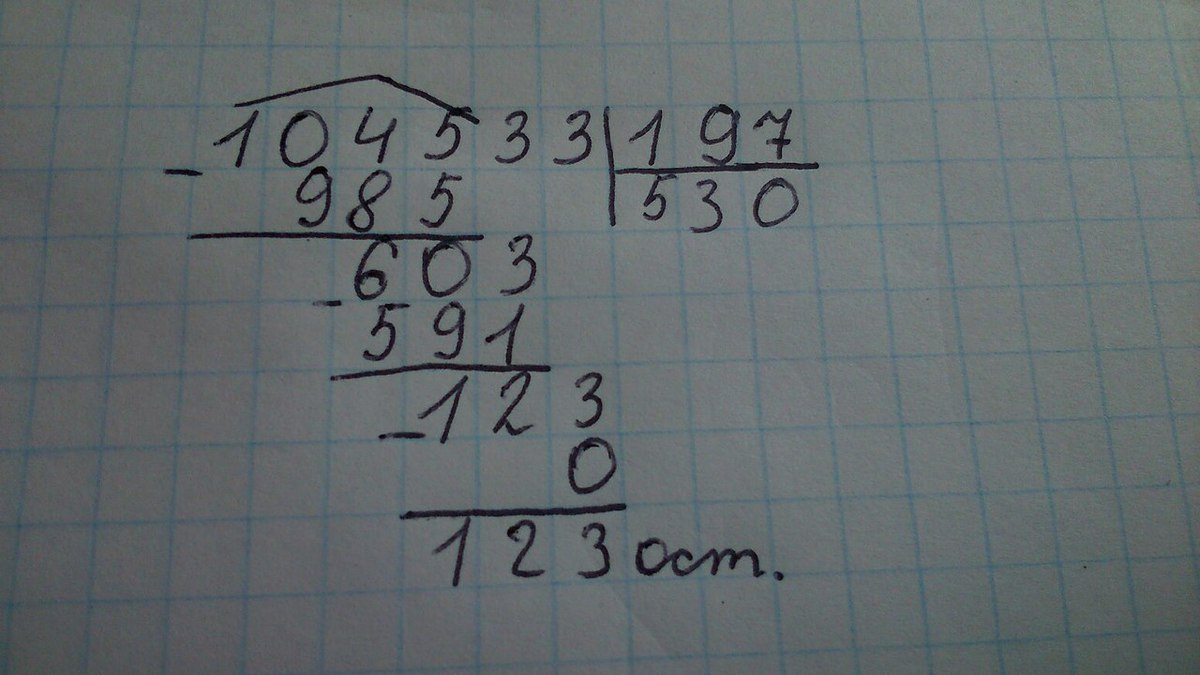 104533 197
- 985 530
- 603
591
- 123
0
123 ост.